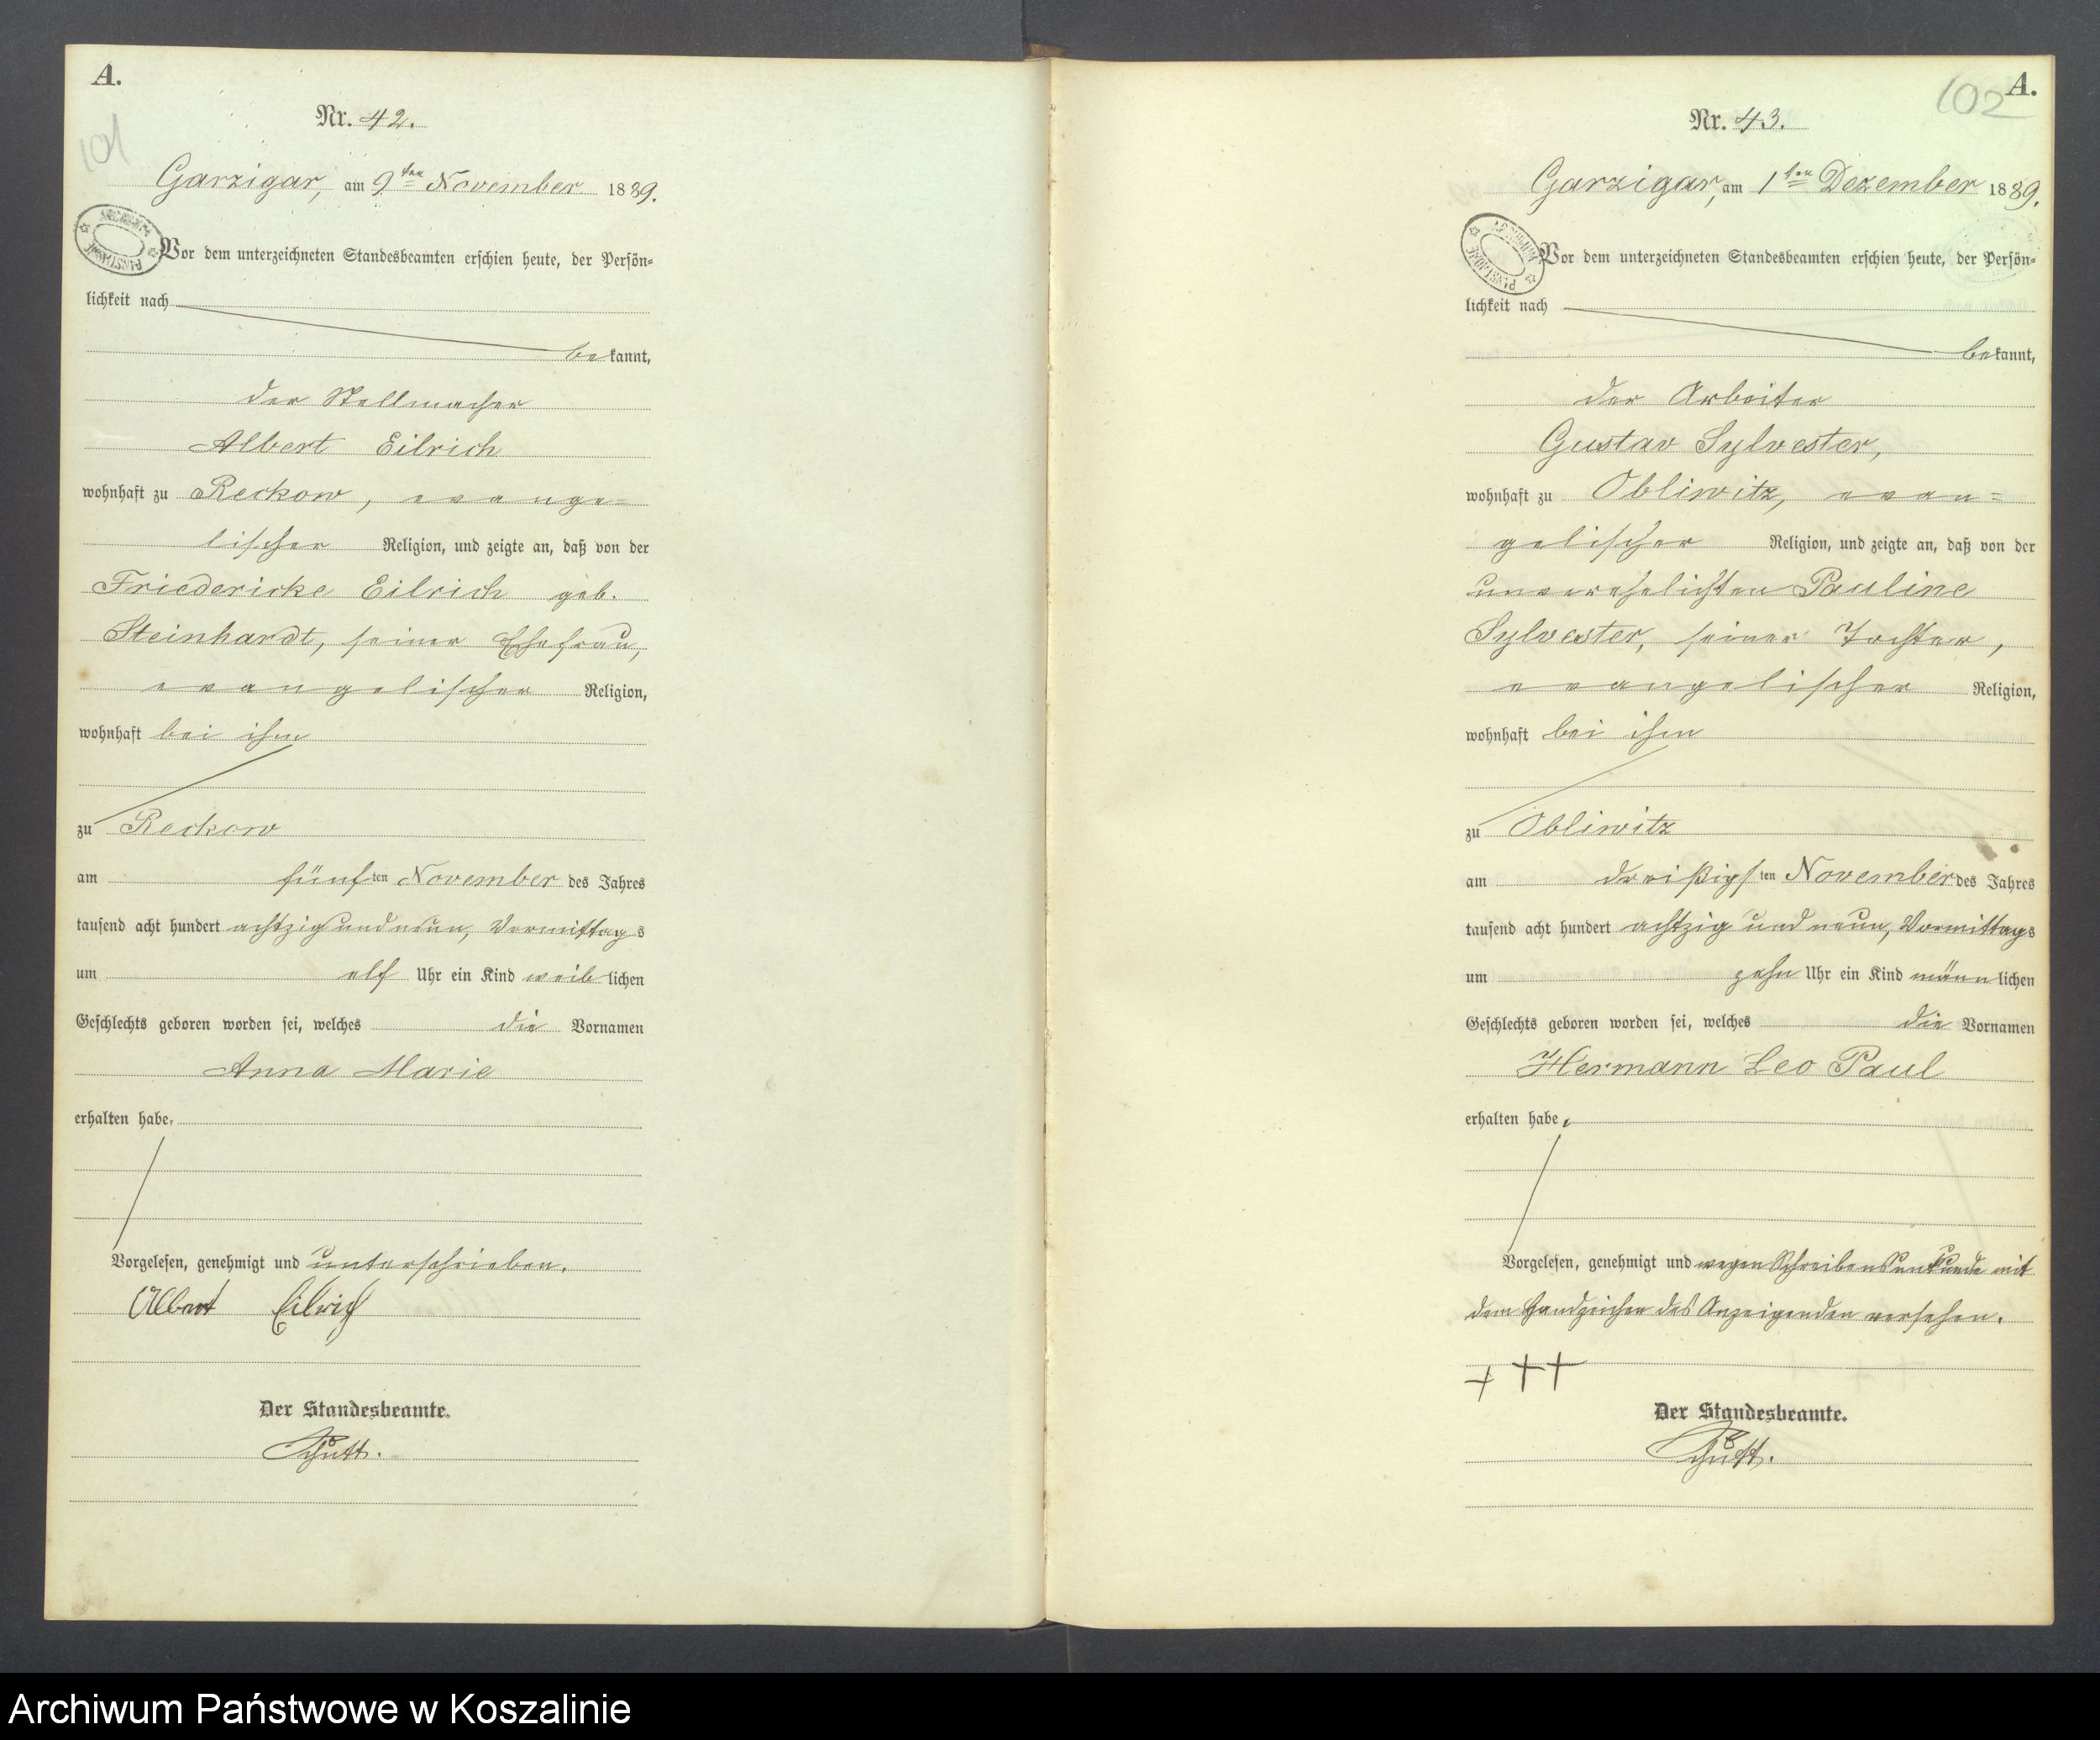 A.
101
Nr. 42.
Garzigar, am 9ten November 1889.
Vor dem unterzeichneten Standesbeamten erschien heute, der Persön=
lichkeit nach
bekannt,
der Stellmacher
Albert Eilrich
wohnhaft zu Reckow, evange=
lischer Religion, und zeigte an, daß von der
Friedericke Eilrich geb.
Steinhardt, seiner Ehefrau,
evangelischer Religion,
wohnhaft bei ihm
zu Reckow
am fünften November des Jahres
tausend acht hundert achtzig und neun, Vormittags
um elf Uhr ein Kind weiblichen
Geschlechts geboren worden sei, welches die Vornamen
Anna Marie
erhalten habe.
Vorgelesen, genehmigt und unterschrieben.
Albert Eilrich
Der Standesbeamte.
Schütt.
A.
102
Nr. 43.
Garzigar, am 1ten Dezember 1889.
Vor dem unterzeichneten Standesbeamten erschien heute, der Persön=
lichkeit nach
bekannt,
der Arbeiter
Gustav Sylvester,
wohnhaft zu Obliwitz, evan=
gelischer Religion, und zeigte an, daß von der
unverehelichten Pauline
Sylvester, seiner Tochter,
evangelischer Religion,
wohnhaft bei ihm
zu Obliwitz
am dreißigsten November des Jahres
tausend acht hundert achtzig und neun, Vormittags
um zehn Uhr ein Kind männlichen
Geschlechts geboren worden sei, welches die Vornamen
Hermann Leo Paul
erhalten habe.
Vorgelesen, genehmigt und wegen Schreibensunkunde mit
dem Handzeichen des Anzeigenden versehen.
+ + +
Der Standesbeamte.
Schütt.
Archiwum Państwowe w Koszalinie